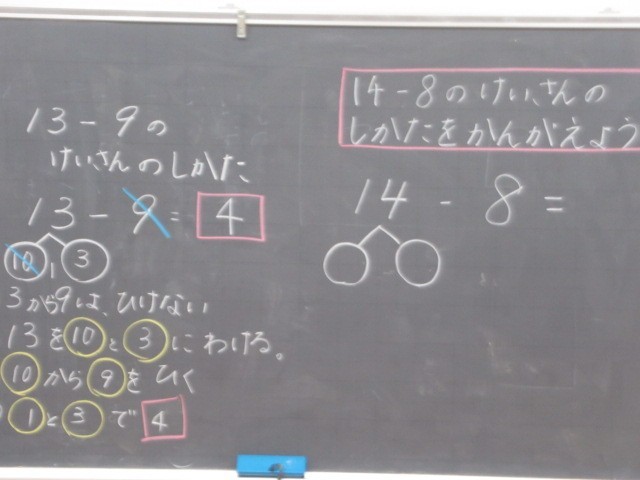 13-9の
けいさんのしかた
13-9=4
10 1 3
3から9は、ひけない
13を10と3にわける。
10から9をひく
1と3で4
14-8のけいさんの
しかたをかんがえよう
14-8=